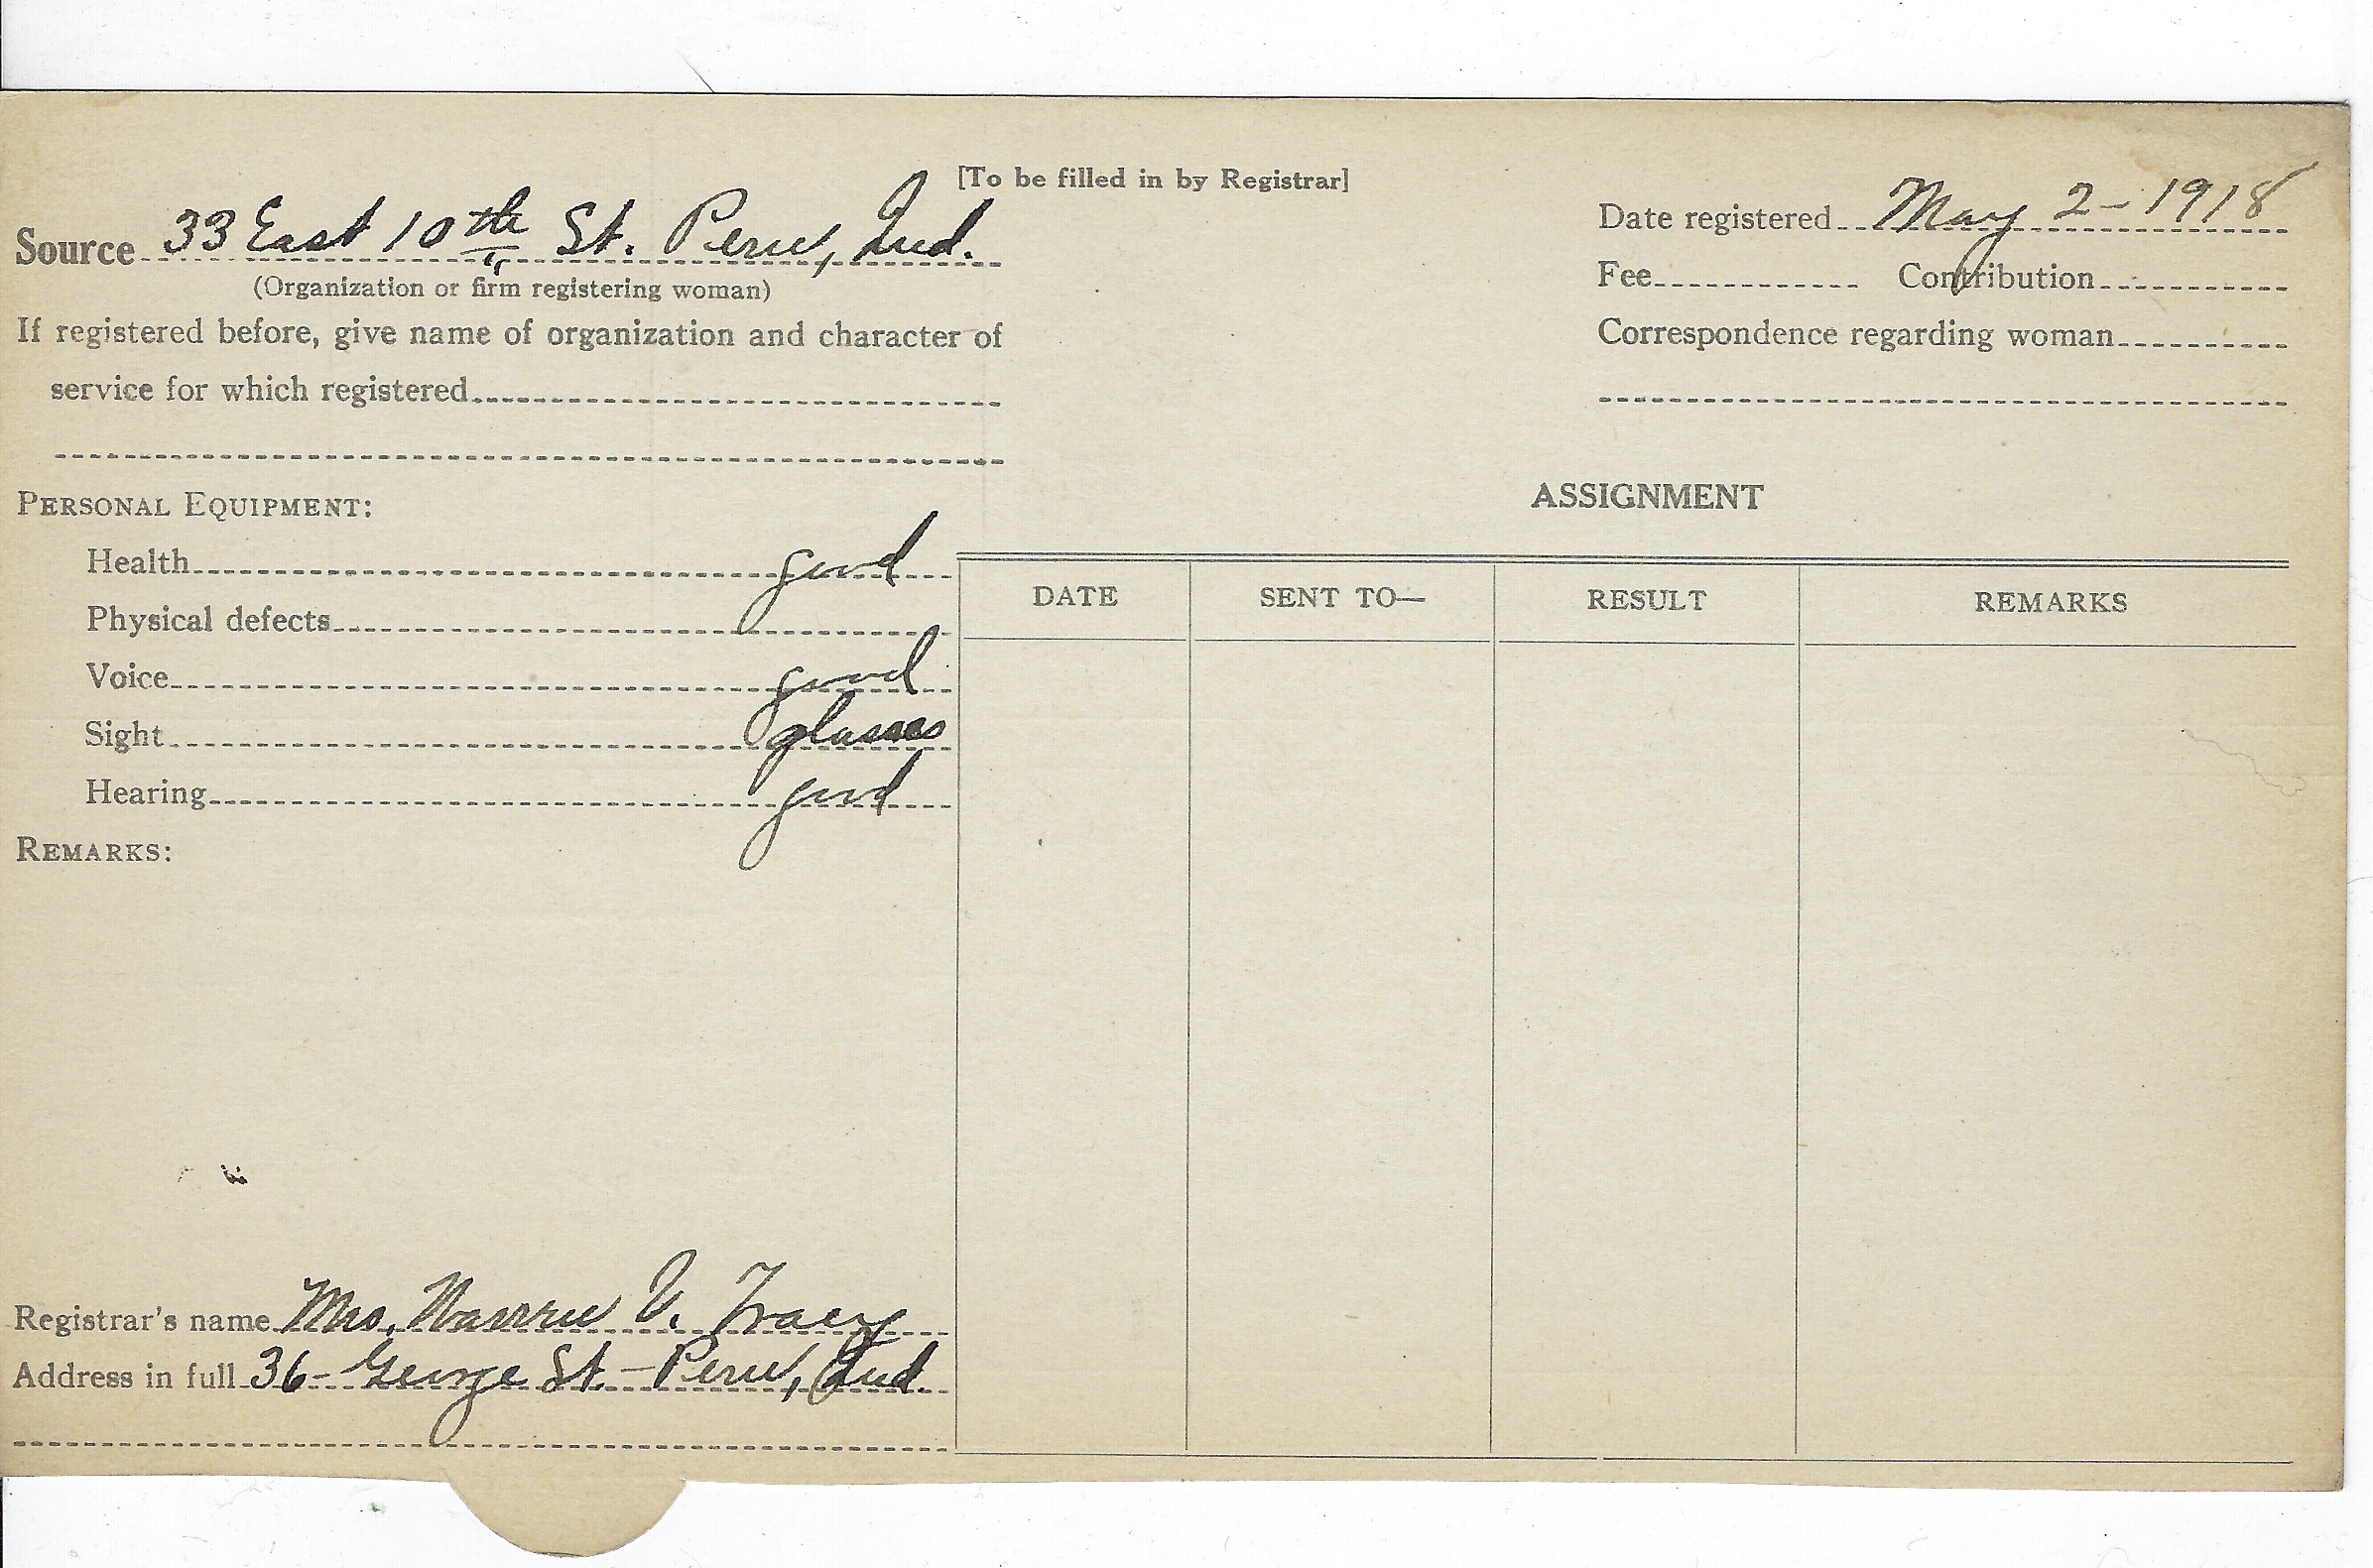 [To be filled in by Registrar]
Source 33 East 10th St. Peru, Ind.
(Organization or firm registering woman)
If registered before, give name of organization and character of
service for which registered
Date registered May 2-1918
Fee Contribution
Correspondence regarding woman
PERSONAL EQUIPMENT:
Health good
Physical defects
Voice good
Sight glasses
Hearing good
REMARKS:
ASSIGNMENT
DATE SENT TO— RESULT REMARKS
Registrar's name Mrs. Warren V. Tracy
Address in full 36- George St.- Peru, Ind.